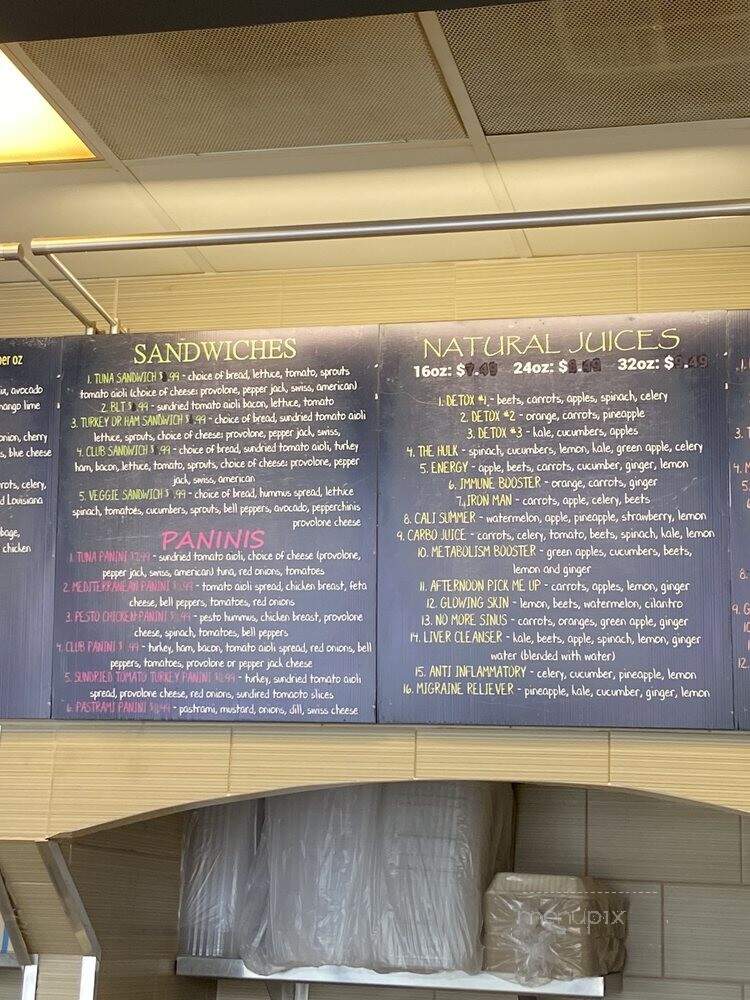 per oz
avocado
mango lime
onion, cherry
s, blue cheese
rots, celery,
d Louisiana
bbage,
chicken
SANDWICHES
1. TUNA SANDWICH .99 - choice of bread, lettuce, tomato, sprouts
tomato aioli (choice of cheese: provolone, pepper jack, swiss, american)
2. BLT .99 - sundried tomato aioli bacon, lettuce, tomato
3. TURKEY OR HAM SANDWICH .99 - choice of bread, sundried tomato aioli
lettuce, sprouts, choice of cheese: provolone, pepper jack, swiss,
4. CLUB SANDWICH .99 - choice of bread, sundried tomato aioli, turkey
ham, bacon, lettuce, tomato, sprouts, choice of cheese: provolone, pepper
jack, swiss, american
5. VEGGIE SANDWICH .99 - choice of bread, hummus spread, lettuce
spinach, tomatoes, cucumbers, sprouts, bell peppers, avocado, pepperchinis
provolone cheese
PANINIS
1. TUNA PANINI - sundried tomato aioli, choice of cheese (provolone,
pepper jack, swiss, american) tuna, red onions, tomatoes
2. MEDITERRANEAN PANINI - tomato aioli spread, chicken breast, feta
cheese, bell peppers, tomatoes, red onions
3. PESTO CHICKEN PANINI - pesto hummus, chicken breast, provolone
cheese, spinach, tomatoes, bell peppers
4. CLUB PANINI $ .99 - turkey, ham, bacon, tomato aioli spread, red onions, bell
peppers, tomatoes, provolone or pepper jack cheese
5. SUNDRIED TOMATO TURKEY PANINI - turkey, sundried tomato aioli
spread, provolone cheese, red onions, sundired tomaoto slices
6. PASTRAMI PANINI - pastrami, mustard, onions, dill, swiss cheese
NATURAL JUICES
16oz: $ .49 24oz: $ 32oz: $ .49
1. DETOX #1 - beets, carrots, apples, spinach, celery
2. DETOX #2 - orange, carrots, pineapple
3. DETOX #3 - kale, cucumbers, apples
4. THE HULK - spinach, cucumbers, lemon, kale, green apple, celery
5. ENERGY - apple, beets, carrots, cucumber, ginger, lemon
6. IMMUNE BOOSTER - orange, carrots, ginger
7. IRON MAN - carrots, apple, celery, beets
8. CALI SUMMER - watermelon, apple, pineapple, strawberry, lemon
9. CARBO JUICE - carrots, celery, tomato, beets, spinach, kale, lemon
10. METABOLISM BOOSTER - green apples, cucumbers, beets,
lemon and ginger
11. AFTERNOON PICK ME UP - carrots, apples, lemon, ginger
12. GLOWING SKIN - lemon, beets, watermelon, cilantro
13. NO MORE SINUS - carrots, oranges, green apple, ginger
14. LIVER CLEANSER - kale, beets, apple, spinach, lemon, ginger
water (blended with water)
15. ANTI INFLAMMATORY - celery, cucumber, pineapple, lemon
16. MIGRAINE RELIEVER - pineapple, kale, cucumber, ginger, lemon
menupix